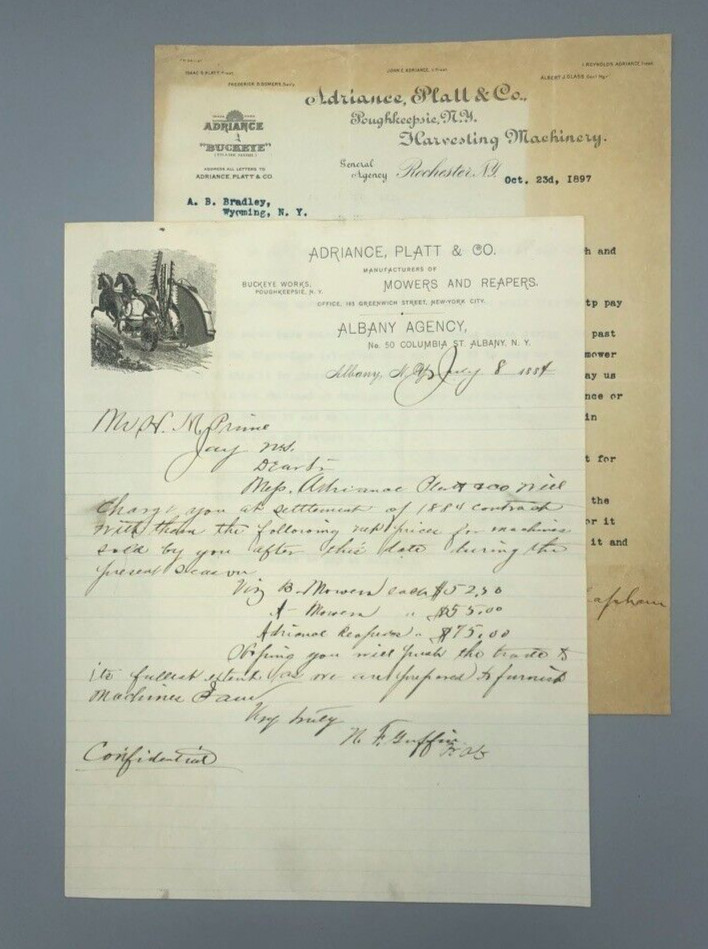 ISAAC S. PLATT,
JOHN E. ADRIANCE,
I. REYNOLDS ADRIANCE,
FREDERICK
ALBERT J. GLASS,
Adriance, Platt & Co.,
Poughkeepsie, N.Y.
Harvesting Machinery.
ADRIANCE
&
"BUCKEYE"
ADDRESS ALL LETTERS TO
ADRIANCE, PLATT & CO.
General
Agency
Rochester, N.Y.
Oct. 23d, 1897
A. B. Bradley,
Wyoming, N. Y.
h and
tp pay
past
mower
ay us
nce or
in
t for
the
or it
it and
ADRIANCE, PLATT & CO.
MANUFACTURERS OF
BUCKEYE WORKS,
POUGHKEEPSIE, N. Y.
MOWERS AND REAPERS.
OFFICE, 165 GREENWICH STREET, NEW-YORK CITY.
ALBANY AGENCY,
No. 50 COLUMBIA ST. ALBANY, N. Y.
Albany, N.Y. July 8 1884
Mr H. M. Prime
Jay N.Y.
Dear Sir
Mess. Adriance Platt & Co will
charge you at settlement of 1884 contract
with them the following net prices for machines
sold by you after this date during the
present season
Viz B. Mowers each $52.50
A Mowers " $55.00
Adriance Reapers " $75.00
Hoping you will push the trade to
its fullest extent, as we are prepared to furnish
machines I am
Very truly
Confidential